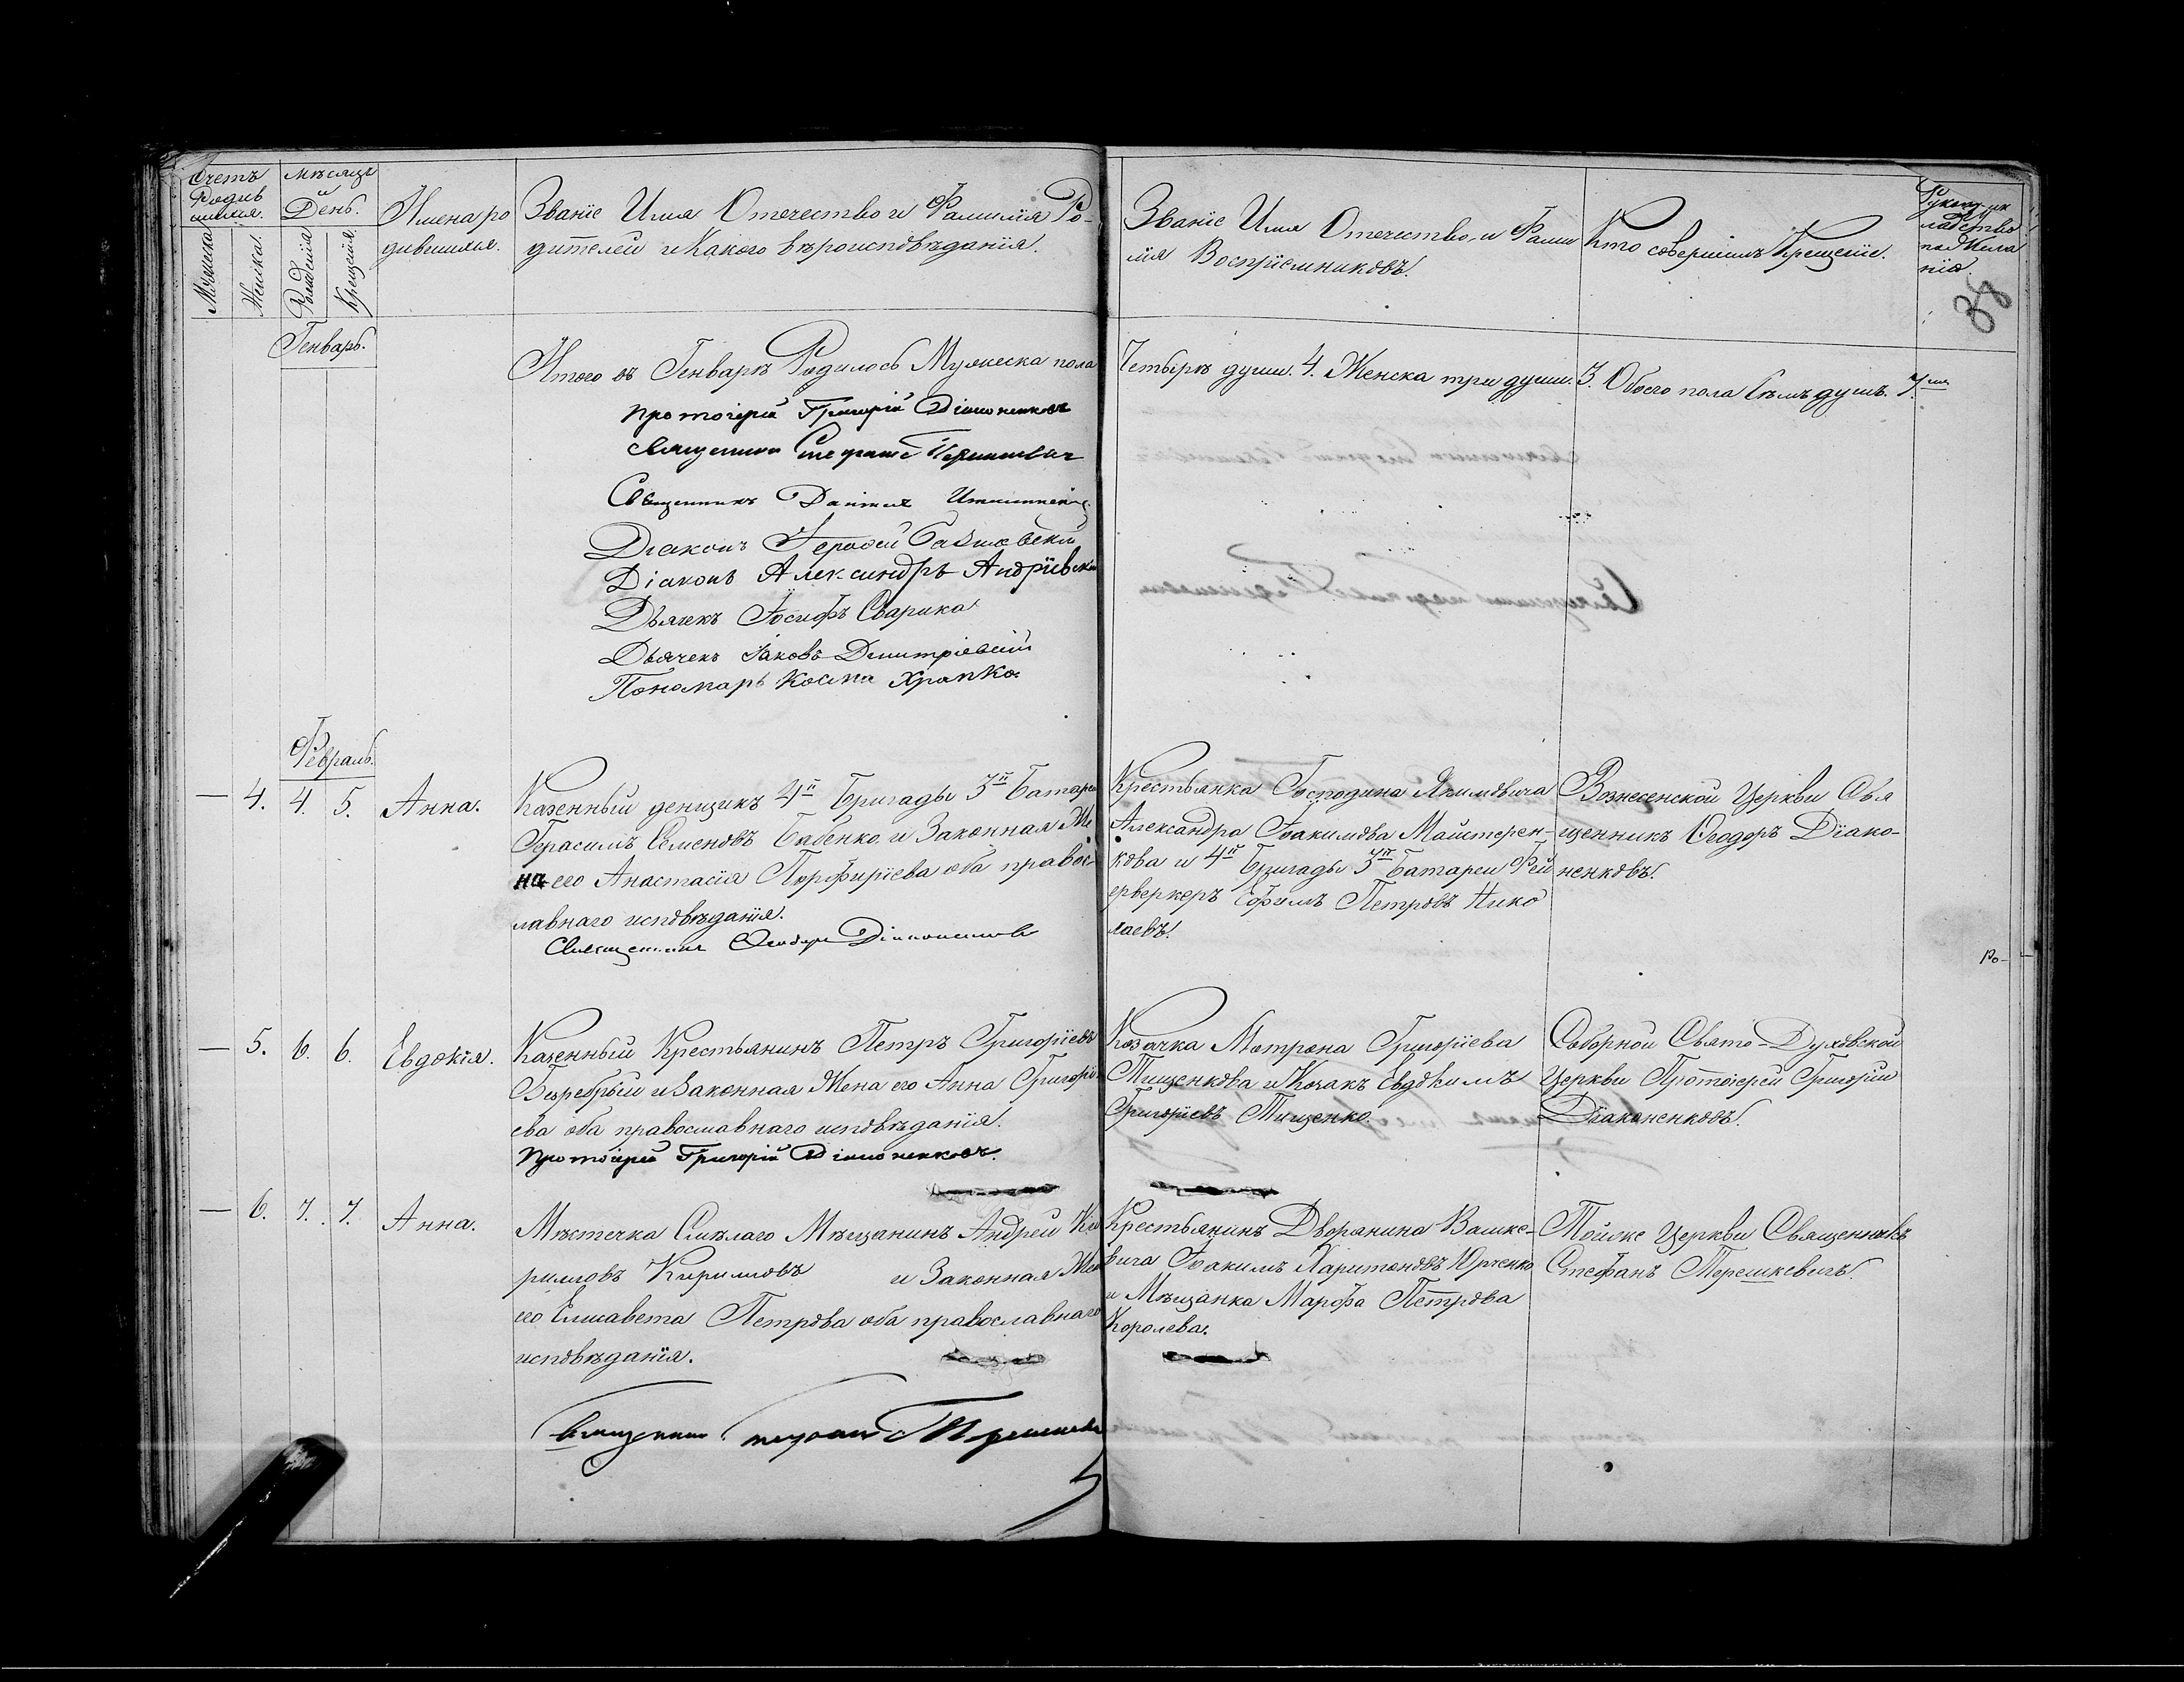 Счетъ
Родив
шихся.
Мѣсяцъ
и
День.
Мужеска
Женска
Рожденія
Крещенія
Имена ро
дившихся.
Званіе Имя Отечество и Фамилія Ро-
дителей и Какого вѣроисповѣданія.
Званіе Имя Отечество, и Фами
лія Воспріемниковъ.
Кто совершилъ Крещеніе.
38
Генварь.
Итого въ Генварѣ Родилось Мужеска пола
Четырѣ души. 4. Женска три души. 3. Обоего пола Семъ душъ. 7.
Протоіерей Григорій Діаконенковъ
Священникъ Стефанъ Терешкевичъ
Священникъ Даніилъ
Діаконъ
Діаконъ Александръ Андріевскій
Дьячекъ Іосифъ Сварика
Дьячекъ Іаковъ Димитріевскій
Пономарь Косма Храпко
Февраль.
— 4. 4. 5. Анна.
Казенный денщикъ 4й Бригады 3й Батареи
Герасимъ Семеновъ Бабенко, и Законная Же
на его Анастасія Порфиріева оба правос-
лавнаго исповѣданія.
Священникъ Ѳеодоръ Діаконенковъ
Крестьянка Господина Якимовича
Александра Іоакимова Майстерен-
кова и 4й Бригады 3й Батареи Фей
ерверкеръ Ефимъ Петровъ Нико
лаевъ.
Вознесенской Церкви Свя
щенникъ Ѳеодоръ Діако-
ненковъ.
— 5. 6. 6. Евдокія.
Казенный Крестьянинъ Петръ Григоріевъ
и Законная Жена его Анна Григорі
ева оба православнаго исповѣданія.
Протоіерей Григорій Діаконенковъ.
Козачка Матрона Григоріева
Тищенкова и Козакъ Евдокимъ
Григоріевъ Тищенко.
Соборной Свято-Духовской
Церкви Протоіерей Григорій
Діаконенковъ.
— 6. 7. 7. Анна.
Мѣстечка Смѣлаго Мѣщанинъ Андрей Ки
риловъ Кириловъ и Законная Жена
его Елисавета Петрова оба православнаго
исповѣданія.
Священникъ Стефанъ Терешкевичъ
Крестьянинъ Дворянина Вашке-
вича Іоакимъ Харитоновъ Юрченко
и Мѣщанка Марфа Петрова
Королева.
Тойже Церкви Священникъ
Стефанъ Терешкевичъ.